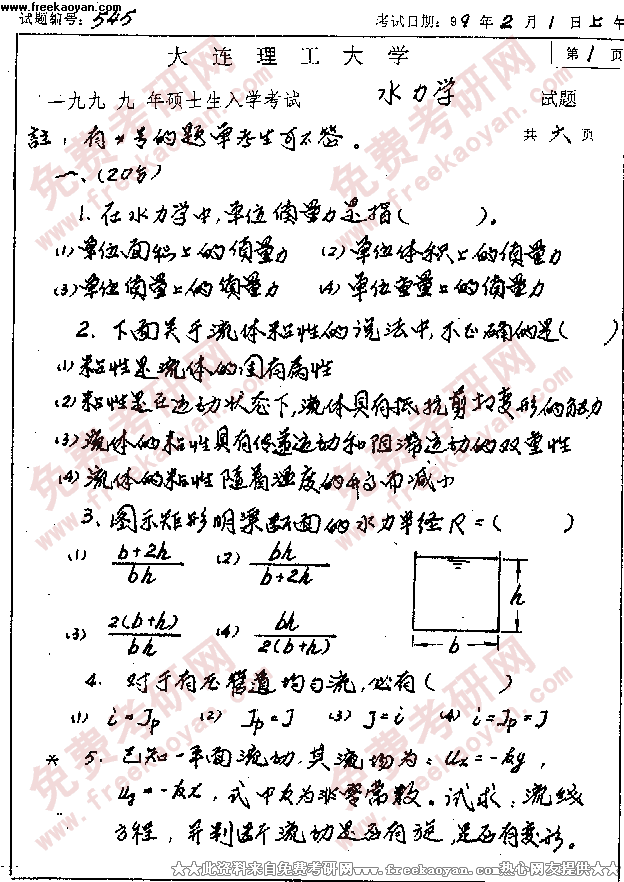 www.freekaoyan.com
试题编号：545 考试日期：99年2月1日上午
大连理工大学 第1页
一九九九年硕士生入学考试 水力学 试题
註：有*号的题单考生可不答。 共六页
一、(20分)
1. 在水力学中，单位质量力是指( )。
(1) 单位面积上的质量力 (2) 单位体积上的质量力
(3) 单位质量上的质量力 (4) 单位重量上的质量力
2. 下面关于流体粘性的说法中，不正确的是( )
(1) 粘性是流体的固有属性
(2) 粘性是在运动状态下，流体具有抵抗剪切变形的能力
(3) 流体的粘性具有传递运动和阻滞运动的双重性
(4) 流体的粘性随着温度的升高而减小
3. 图示矩形明渠断面的水力半径 R=( )
(1) b+2h / bh (2) bh / b+2h
(3) 2(b+h) / bh (4) bh / 2(b+h)
h
b
4. 对于有压管道均匀流，必有( )
(1) i=Jp (2) Jp=J (3) J=i (4) i=Jp=J
* 5. 已知一平面流动，其流场为：ux=-ky，
uy=-kx，式中k为非零常数。试求：流线
方程，并判断流动是否有旋，是否有变形。
★★此资料来自免费考研网www.freekaoyan.com热心网友提供★★
免费考研网
www.freekaoyan.com